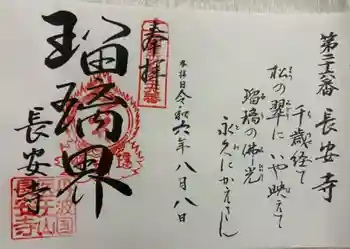 第二十六番 長安寺
千歳経て
松の翠に いや映えて
瑠璃の佛光
永久にかえさん
奉拝
参拝日 令和六年八月八日
瑠璃界
長安寺